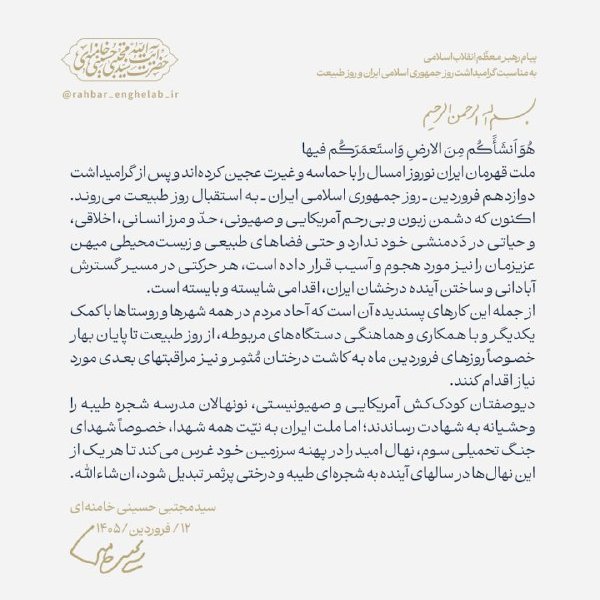 پیام رهبر معظّم انقلاب اسلامی
به مناسبت گرامیداشت روز جمهوری اسلامی ایران و روز طبیعت
حضرت آیت‌الله سید مجتبی حسینی خامنه‌ای
@rahbar_enghelab_ir
بسم الله الرحمن الرحیم
هُوَ اَنشَأَكُم مِنَ الارضِ وَاستَعمَرَكُم فیها
ملت قهرمان ایران نوروز امسال را با حماسه و غیرت عجین کرده‌اند و پس از گرامیداشت
دوازدهم فروردین ـ روز جمهوری اسلامی ایران ـ به استقبال روز طبیعت می‌روند.
اکنون که دشمن زبون و بی‌رحم آمریکایی و صهیونی، حدّ و مرز انسانی، اخلاقی،
و حیاتی در دَدمنشی خود ندارد و حتی فضاهای طبیعی و زیست‌محیطی میهن
عزیزمان را نیز مورد هجوم و آسیب قرار داده است، هر حرکتی در مسیر گسترش
آبادانی و ساختن آینده درخشان ایران، اقدامی شایسته و بایسته است.
از جمله این کارهای پسندیده آن است که آحاد مردم در همه شهرها و روستاها با کمک
یکدیگر و با همکاری و هماهنگی دستگاه‌های مربوطه، از روز طبیعت تا پایان بهار
خصوصاً روزهای فروردین ماه به کاشت درختان مُثمِر و نیز مراقبتهای بعدی مورد
نیاز اقدام کنند.
دیوصفتان کودک‌کش آمریکایی و صهیونیستی، نونهالان مدرسه شجره طیبه را
وحشیانه به شهادت رساندند؛ اما ملت ایران به نیّت همه شهدا، خصوصاً شهدای
جنگ تحمیلی سوم، نهال امید را در پهنه سرزمین خود غرس می‌کند تا هر یک از
این نهال‌ها در سالهای آینده به شجره‌ای طیبه و درختی پرثمر تبدیل شود، ان‌شاءالله.
سید مجتبی حسینی خامنه‌ای
۱۲/ فروردین/ ۱۴۰۵